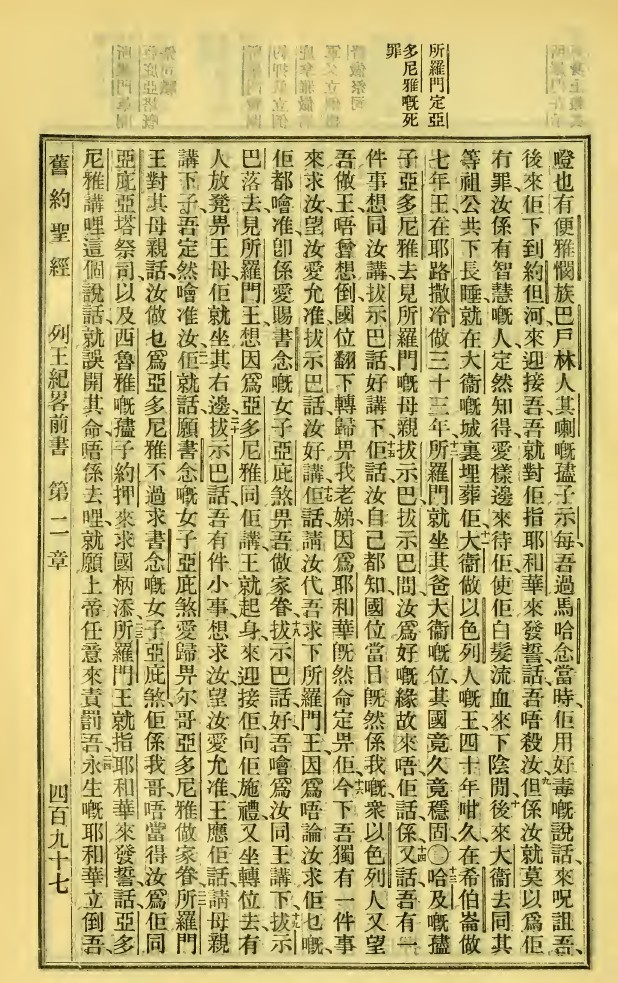 所羅門定亞
多尼雅嘅死
罪
瞪也有便雅憫族巴戶林人其喇嘅孻子示每吾過馬哈念當時佢用好毒嘅說話來呪詛吾
後來佢下到約但河來迎接吾吾就對佢指耶和華來發誓話吾唔殺汝九但係汝就莫以爲佢
冇罪汝係有智慧嘅人定然知得愛樣邊來待佢使佢白髮流血來下陰間十後來大衛去同其
等祖公共下長睡就在大衛嘅城裏埋葬佢十一大衛做以色列人嘅王四十年咁久在希伯崙做
七年王在耶路撒冷做三十三年十二所羅門就坐其爸大衛嘅位其國竟久竟穩固〇十三哈及嘅孻
子亞多尼雅去見所羅門嘅母親拔示巴拔示巴問汝爲好嘅緣故來唔佢話係十四又話吾有一
件事想同汝講拔示巴話好講下十五佢話汝自己都知國位當日既然係我嘅衆以色列人又望
吾做王唔曾想倒國位翻下轉歸畀我老娣因爲耶和華既然命定畀佢十六今下吾獨有一件事
來求汝望汝愛允准拔示巴話汝好講十七佢話請汝代吾求下所羅門王因爲唔論汝求佢乜嘅
佢都噲准卽係愛賜書念嘅女子亞庇煞畀吾做家眷十八拔示巴話好吾噲爲汝同王講下十九拔示
巴落去見所羅門王想因爲亞多尼雅同佢講王就起身來迎接佢向佢施禮又坐轉位去有
人放凳畀王母佢就坐其右邊二十拔示巴話吾有件小事想求汝望汝愛允准王應佢話請母親
講下子吾定然噲准汝二一佢就話願書念嘅女子亞庇煞愛歸畀尔哥亞多尼雅做家眷二二所羅門
王對其母親話汝做乜爲亞多尼雅不過求書念嘅女子亞庇煞佢係我哥唔當得汝爲佢同
亞庇亞塔祭司以及西魯雅嘅孻子約押來求國柄添二三所羅門王就指耶和華來發誓話亞多
尼雅講哩這個說話就誤開其命唔係去哩就願上帝任意來責罰吾二四永生嘅耶和華立倒吾
舊約聖經 列王紀畧前書 第二章 四百九十七